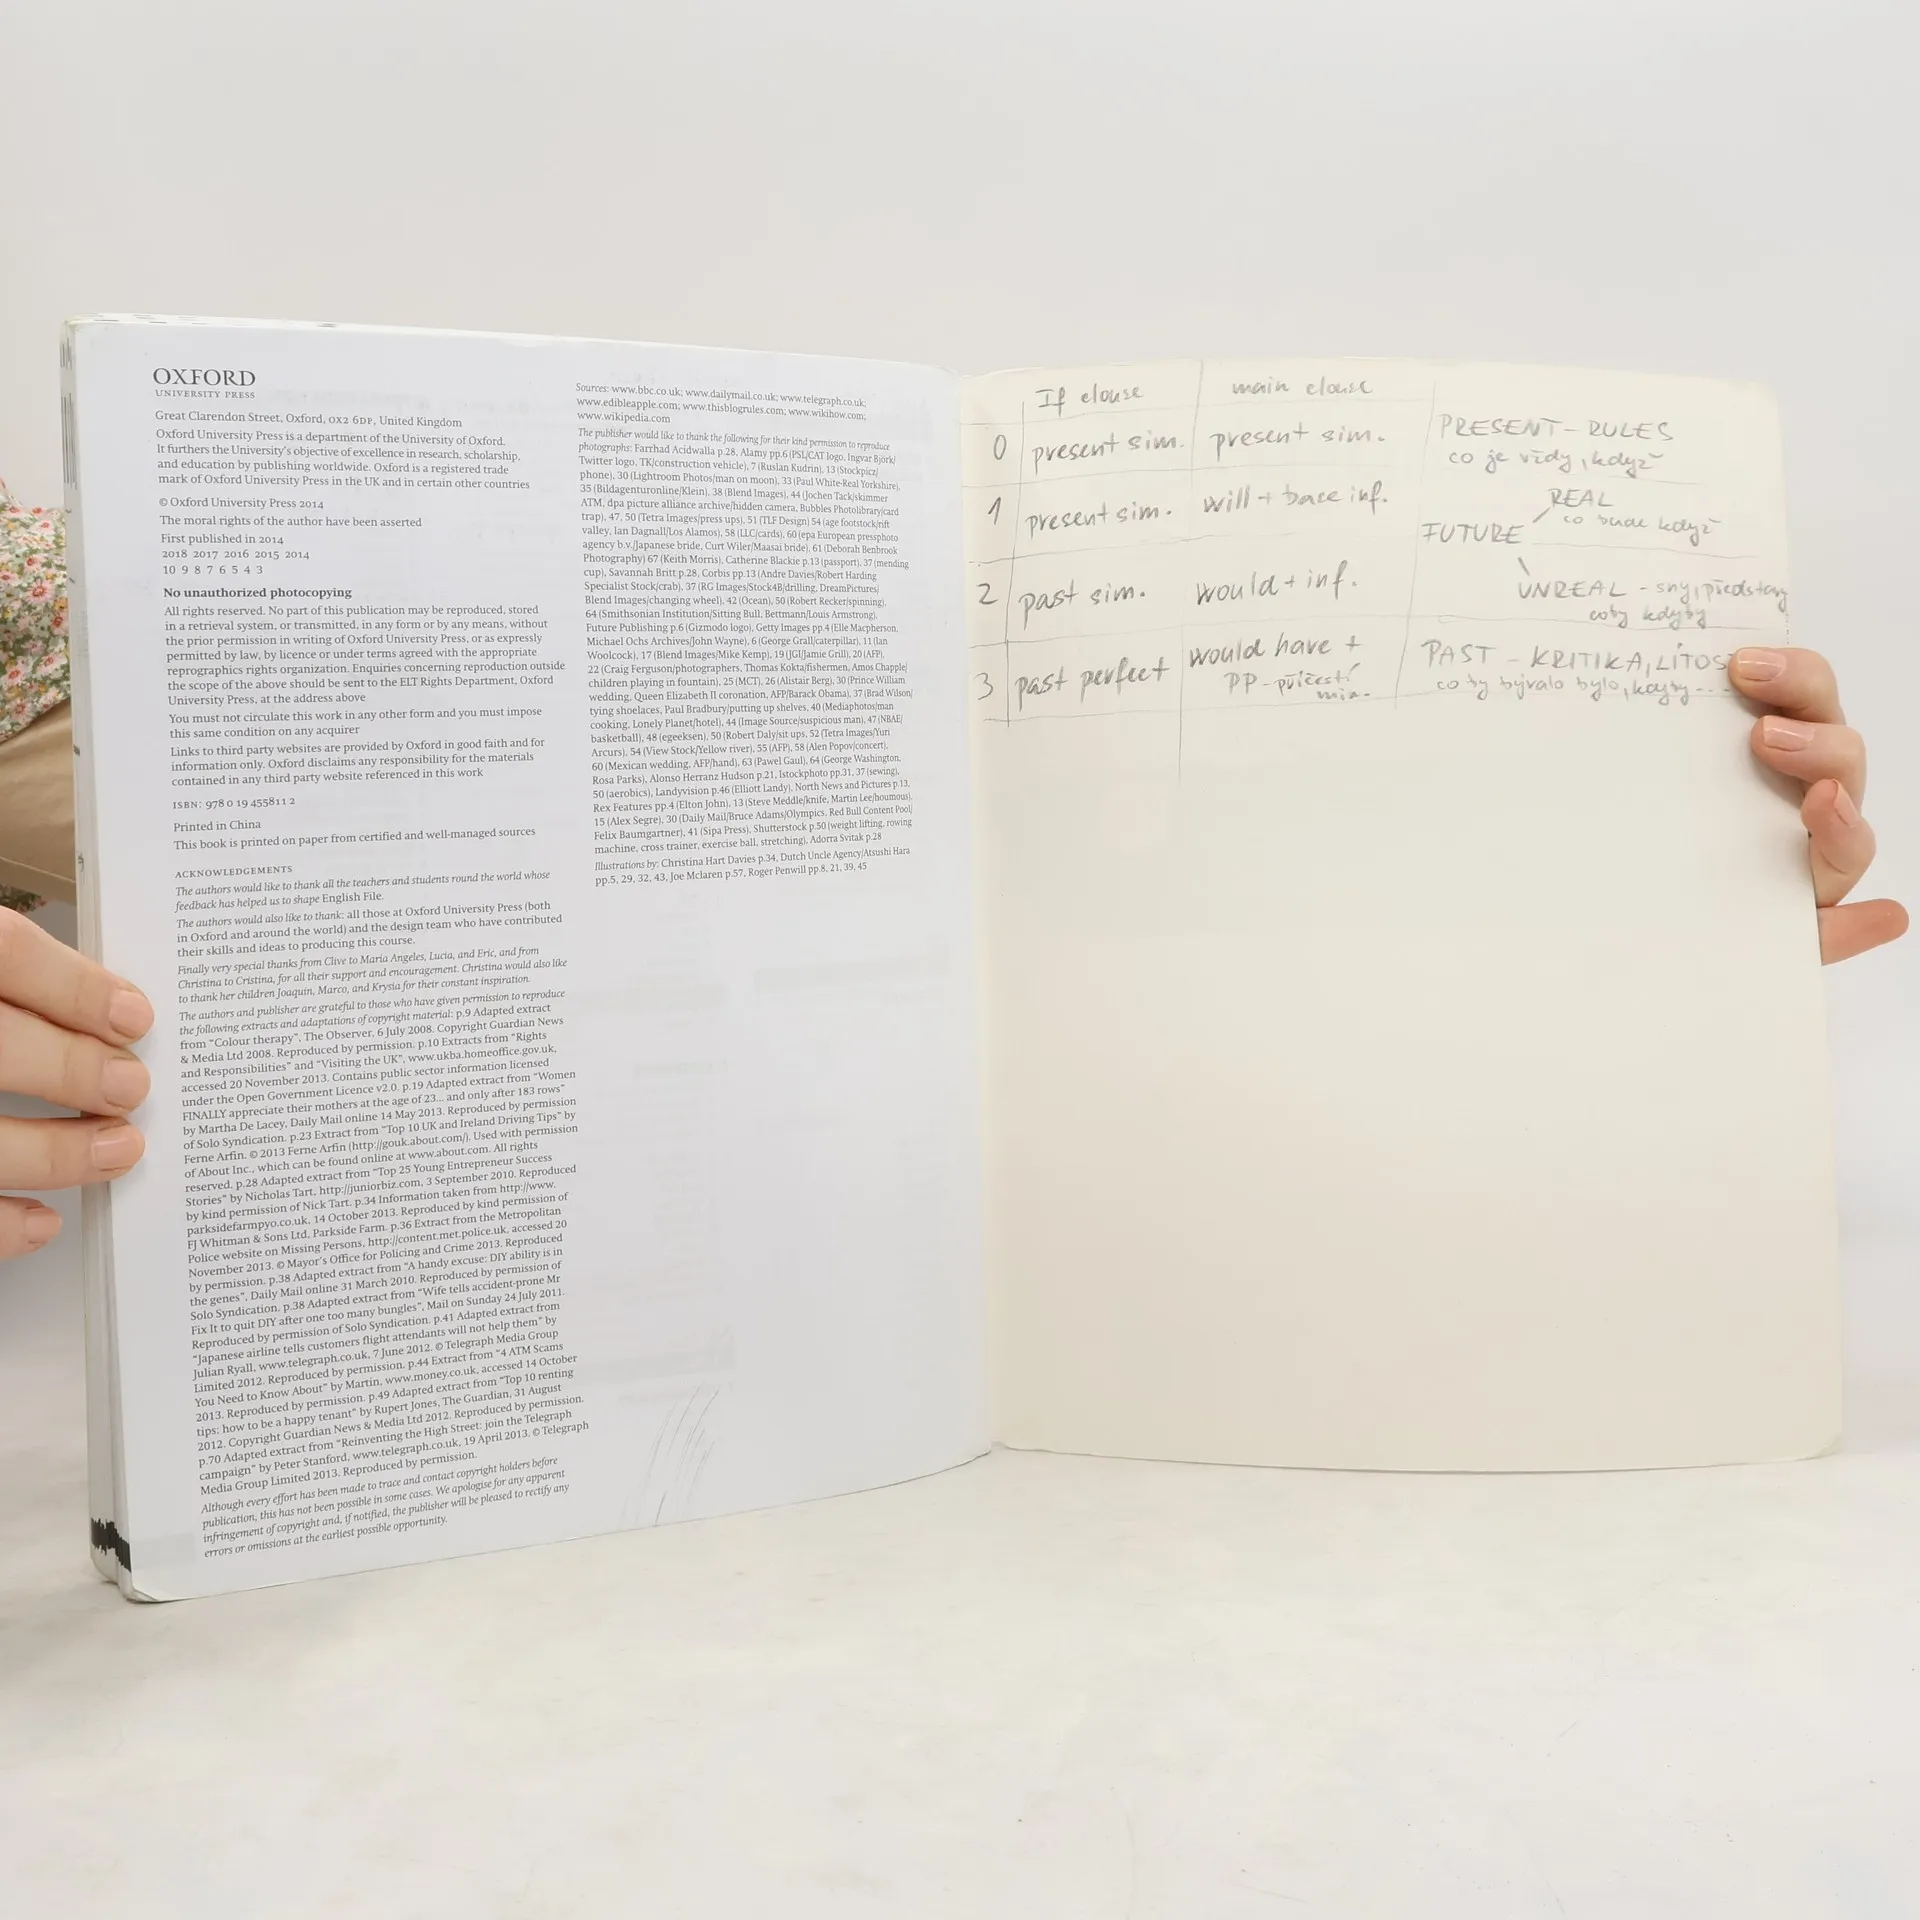 OXFORD
UNIVERSITY PRESS
Great Clarendon Street, Oxford, OX2 6DP, United Kingdom
Oxford University Press is a department of the University of Oxford.
It furthers the University's objective of excellence in research, scholarship,
and education by publishing worldwide. Oxford is a registered trade
mark of Oxford University Press in the UK and in certain other countries
© Oxford University Press 2014
The moral rights of the author have been asserted
First published in 2014
2018 2017 2016 2015 2014
10 9 8 7 6 5 4 3
No unauthorized photocopying
All rights reserved. No part of this publication may be reproduced, stored
in a retrieval system, or transmitted, in any form or by any means, without
the prior permission in writing of Oxford University Press, or as expressly
permitted by law, by licence or under terms agreed with the appropriate
reprographics rights organization. Enquiries concerning reproduction outside
the scope of the above should be sent to the ELT Rights Department, Oxford
University Press, at the address above
You must not circulate this work in any other form and you must impose
this same condition on any acquirer
Links to third party websites are provided by Oxford in good faith and for
information only. Oxford disclaims any responsibility for the materials
contained in any third party website referenced in this work
ISBN: 978 0 19 455811 2
Printed in China
This book is printed on paper from certified and well-managed sources
ACKNOWLEDGEMENTS
The authors would like to thank all the teachers and students round the world whose
feedback has helped us to shape English File.
The authors would also like to thank: all those at Oxford University Press (both
in Oxford and around the world) and the design team who have contributed
their skills and ideas to producing this course.
Finally very special thanks from Clive to Maria Angeles, Lucia, and Eric, and from
Christina to Cristina, for all their support and encouragement. Christina would also like
to thank her children Joaquin, Marco, and Krysia for their constant inspiration.
The authors and publisher are grateful to those who have given permission to reproduce
the following extracts and adaptations of copyright material: p.9 Adapted extract
from "Colour therapy", The Observer, 6 July 2008. Copyright Guardian News
& Media Ltd 2008. Reproduced by permission. p.10 Extracts from "Rights
and Responsibilities" and "Visiting the UK", www.ukba.homeoffice.gov.uk,
accessed 20 November 2013. Contains public sector information licensed
under the Open Government Licence v2.0. p.19 Adapted extract from "Women
FINALLY appreciate their mothers at the age of 23... and only after 183 rows"
by Martha De Lacey, Daily Mail online 14 May 2013. Reproduced by permission
of Solo Syndication. p.23 Extract from "Top 10 UK and Ireland Driving Tips" by
Ferne Arfin. © 2013 Ferne Arfin (http://gouk.about.com/). Used with permission
of About Inc., which can be found online at www.about.com. All rights
reserved. p.28 Adapted extract from "Top 25 Young Entrepreneur Success
Stories" by Nicholas Tart, http://juniorbiz.com, 3 September 2010. Reproduced
by kind permission of Nick Tart. p.34 Information taken from http://www.
parksidefarmpyo.co.uk, 14 October 2013. Reproduced by kind permission of
FJ Whitman & Sons Ltd, Parkside Farm. p.36 Extract from the Metropolitan
Police website on Missing Persons, http://content.met.police.uk, accessed 20
November 2013. © Mayor's Office for Policing and Crime 2013. Reproduced
by permission. p.38 Adapted extract from "A handy excuse: DIY ability is in
the genes", Daily Mail online 31 March 2010. Reproduced by permission of
Solo Syndication. p.38 Adapted extract from "Wife tells accident-prone Mr
Fix It to quit DIY after one too many bungles", Mail on Sunday 24 July 2011.
Reproduced by permission of Solo Syndication. p.41 Adapted extract from
"Japanese airline tells customers flight attendants will not help them" by
Julian Ryall, www.telegraph.co.uk, 7 June 2012. © Telegraph Media Group
Limited 2012. Reproduced by permission. p.44 Extract from "4 ATM Scams
You Need to Know About" by Martin, www.money.co.uk, accessed 14 October
2013. Reproduced by permission. p.49 Adapted extract from "Top 10 renting
tips: how to be a happy tenant" by Rupert Jones, The Guardian, 31 August
2012. Copyright Guardian News & Media Ltd 2012. Reproduced by permission.
p.70 Adapted extract from "Reinventing the High Street: join the Telegraph
campaign" by Peter Stanford, www.telegraph.co.uk, 19 April 2013. © Telegraph
Media Group Limited 2013. Reproduced by permission.
Although every effort has been made to trace and contact copyright holders before
publication, this has not been possible in some cases. We apologise for any apparent
infringement of copyright and, if notified, the publisher will be pleased to rectify any
errors or omissions at the earliest possible opportunity.
Sources: www.bbc.co.uk; www.dailymail.co.uk; www.telegraph.co.uk;
www.edibleapple.com; www.thisblogrules.com; www.wikihow.com;
www.wikipedia.com
The publisher would like to thank the following for their kind permission to reproduce
photographs: Farrhad Acidwalla p.28, Alamy pp.6 (PSL/CAT logo, Ingvar Björk/
Twitter logo, TK/construction vehicle), 7 (Ruslan Kudrin), 13 (Stockpicz/
phone), 30 (Lightroom Photos/man on moon), 33 (Paul White-Real Yorkshire),
35 (Bildagenturonline/Klein), 38 (Blend Images), 44 (Jochen Tack/skimmer
ATM, dpa picture alliance archive/hidden camera, Bubbles Photolibrary/card
trap), 47, 50 (Tetra Images/press ups), 51 (TLF Design) 54 (age footstock/rift
valley, Ian Dagnall/Los Alamos), 58 (LLC/cards), 60 (epa European pressphoto
agency b.v./Japanese bride, Curt Wiler/Maasai bride), 61 (Deborah Benbrook
Photography) 67 (Keith Morris), Catherine Blackie p.13 (passport), 37 (mending
cup), Savannah Britt p.28, Corbis pp.13 (Andre Davies/Robert Harding
Specialist Stock/crab), 37 (RG Images/Stock4B/drilling, DreamPictures/
Blend Images/changing wheel), 42 (Ocean), 50 (Robert Recker/spinning),
64 (Smithsonian Institution/Sitting Bull, Bettmann/Louis Armstrong),
Future Publishing p.6 (Gizmodo logo), Getty Images pp.4 (Elle Macpherson,
Michael Ochs Archives/John Wayne), 6 (George Grall/caterpillar), 11 (Ian
Woolcock), 17 (Blend Images/Mike Kemp), 19 (JGI/Jamie Grill), 20 (AFP),
22 (Craig Ferguson/photographers, Thomas Kokta/fishermen, Amos Chapple/
children playing in fountain), 25 (MCT), 26 (Alistair Berg), 30 (Prince William
wedding, Queen Elizabeth II coronation, AFP/Barack Obama), 37 (Brad Wilson/
tying shoelaces, Paul Bradbury/putting up shelves, 40 (Mediaphotos/man
cooking, Lonely Planet/hotel), 44 (Image Source/suspicious man), 47 (NBAE/
basketball), 48 (egeeksen), 50 (Robert Daly/sit ups, 52 (Tetra Images/Yuri
Arcurs), 54 (View Stock/Yellow river), 55 (AFP), 58 (Alen Popov/concert),
60 (Mexican wedding, AFP/hand), 63 (Pawel Gaul), 64 (George Washington,
Rosa Parks), Alonso Herranz Hudson p.21, Istockphoto pp.31, 37 (sewing),
50 (aerobics), Landyvision p.46 (Elliott Landy), North News and Pictures p.13,
Rex Features pp.4 (Elton John), 13 (Steve Meddle/knife, Martin Lee/houmous),
15 (Alex Segre), 30 (Daily Mail/Bruce Adams/Olympics, Red Bull Content Pool/
Felix Baumgartner), 41 (Sipa Press), Shutterstock p.50 (weight lifting, rowing
machine, cross trainer, exercise ball, stretching), Adorra Svitak p.28
Illustrations by: Christina Hart Davies p.34, Dutch Uncle Agency/Atsushi Hara
pp.5, 29, 32, 43, Joe Mclaren p.57, Roger Penwill pp.8, 21, 39, 45
If clouse main clouse
0 present sim. present sim. PRESENT - RULES
co je vždy, když
1 present sim. will + bace inf. REAL
co bude když
FUTURE
2 past sim. would + inf. UNREAL - sny, představy
coby kdyby
3 past perfect would have + PAST - KRITIKA, LÍTOS
PP - příčestí co by bývalo bylo, kdyby - - -
min.